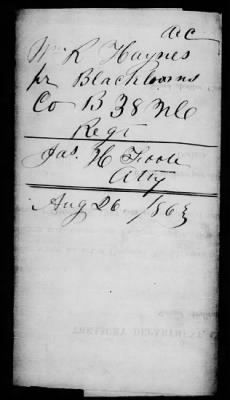 a/c
Wm R Haynes
pr Blackburns
Co B 38 NC
Regt
Jas. H Foote
Atty
Aug 26 /863